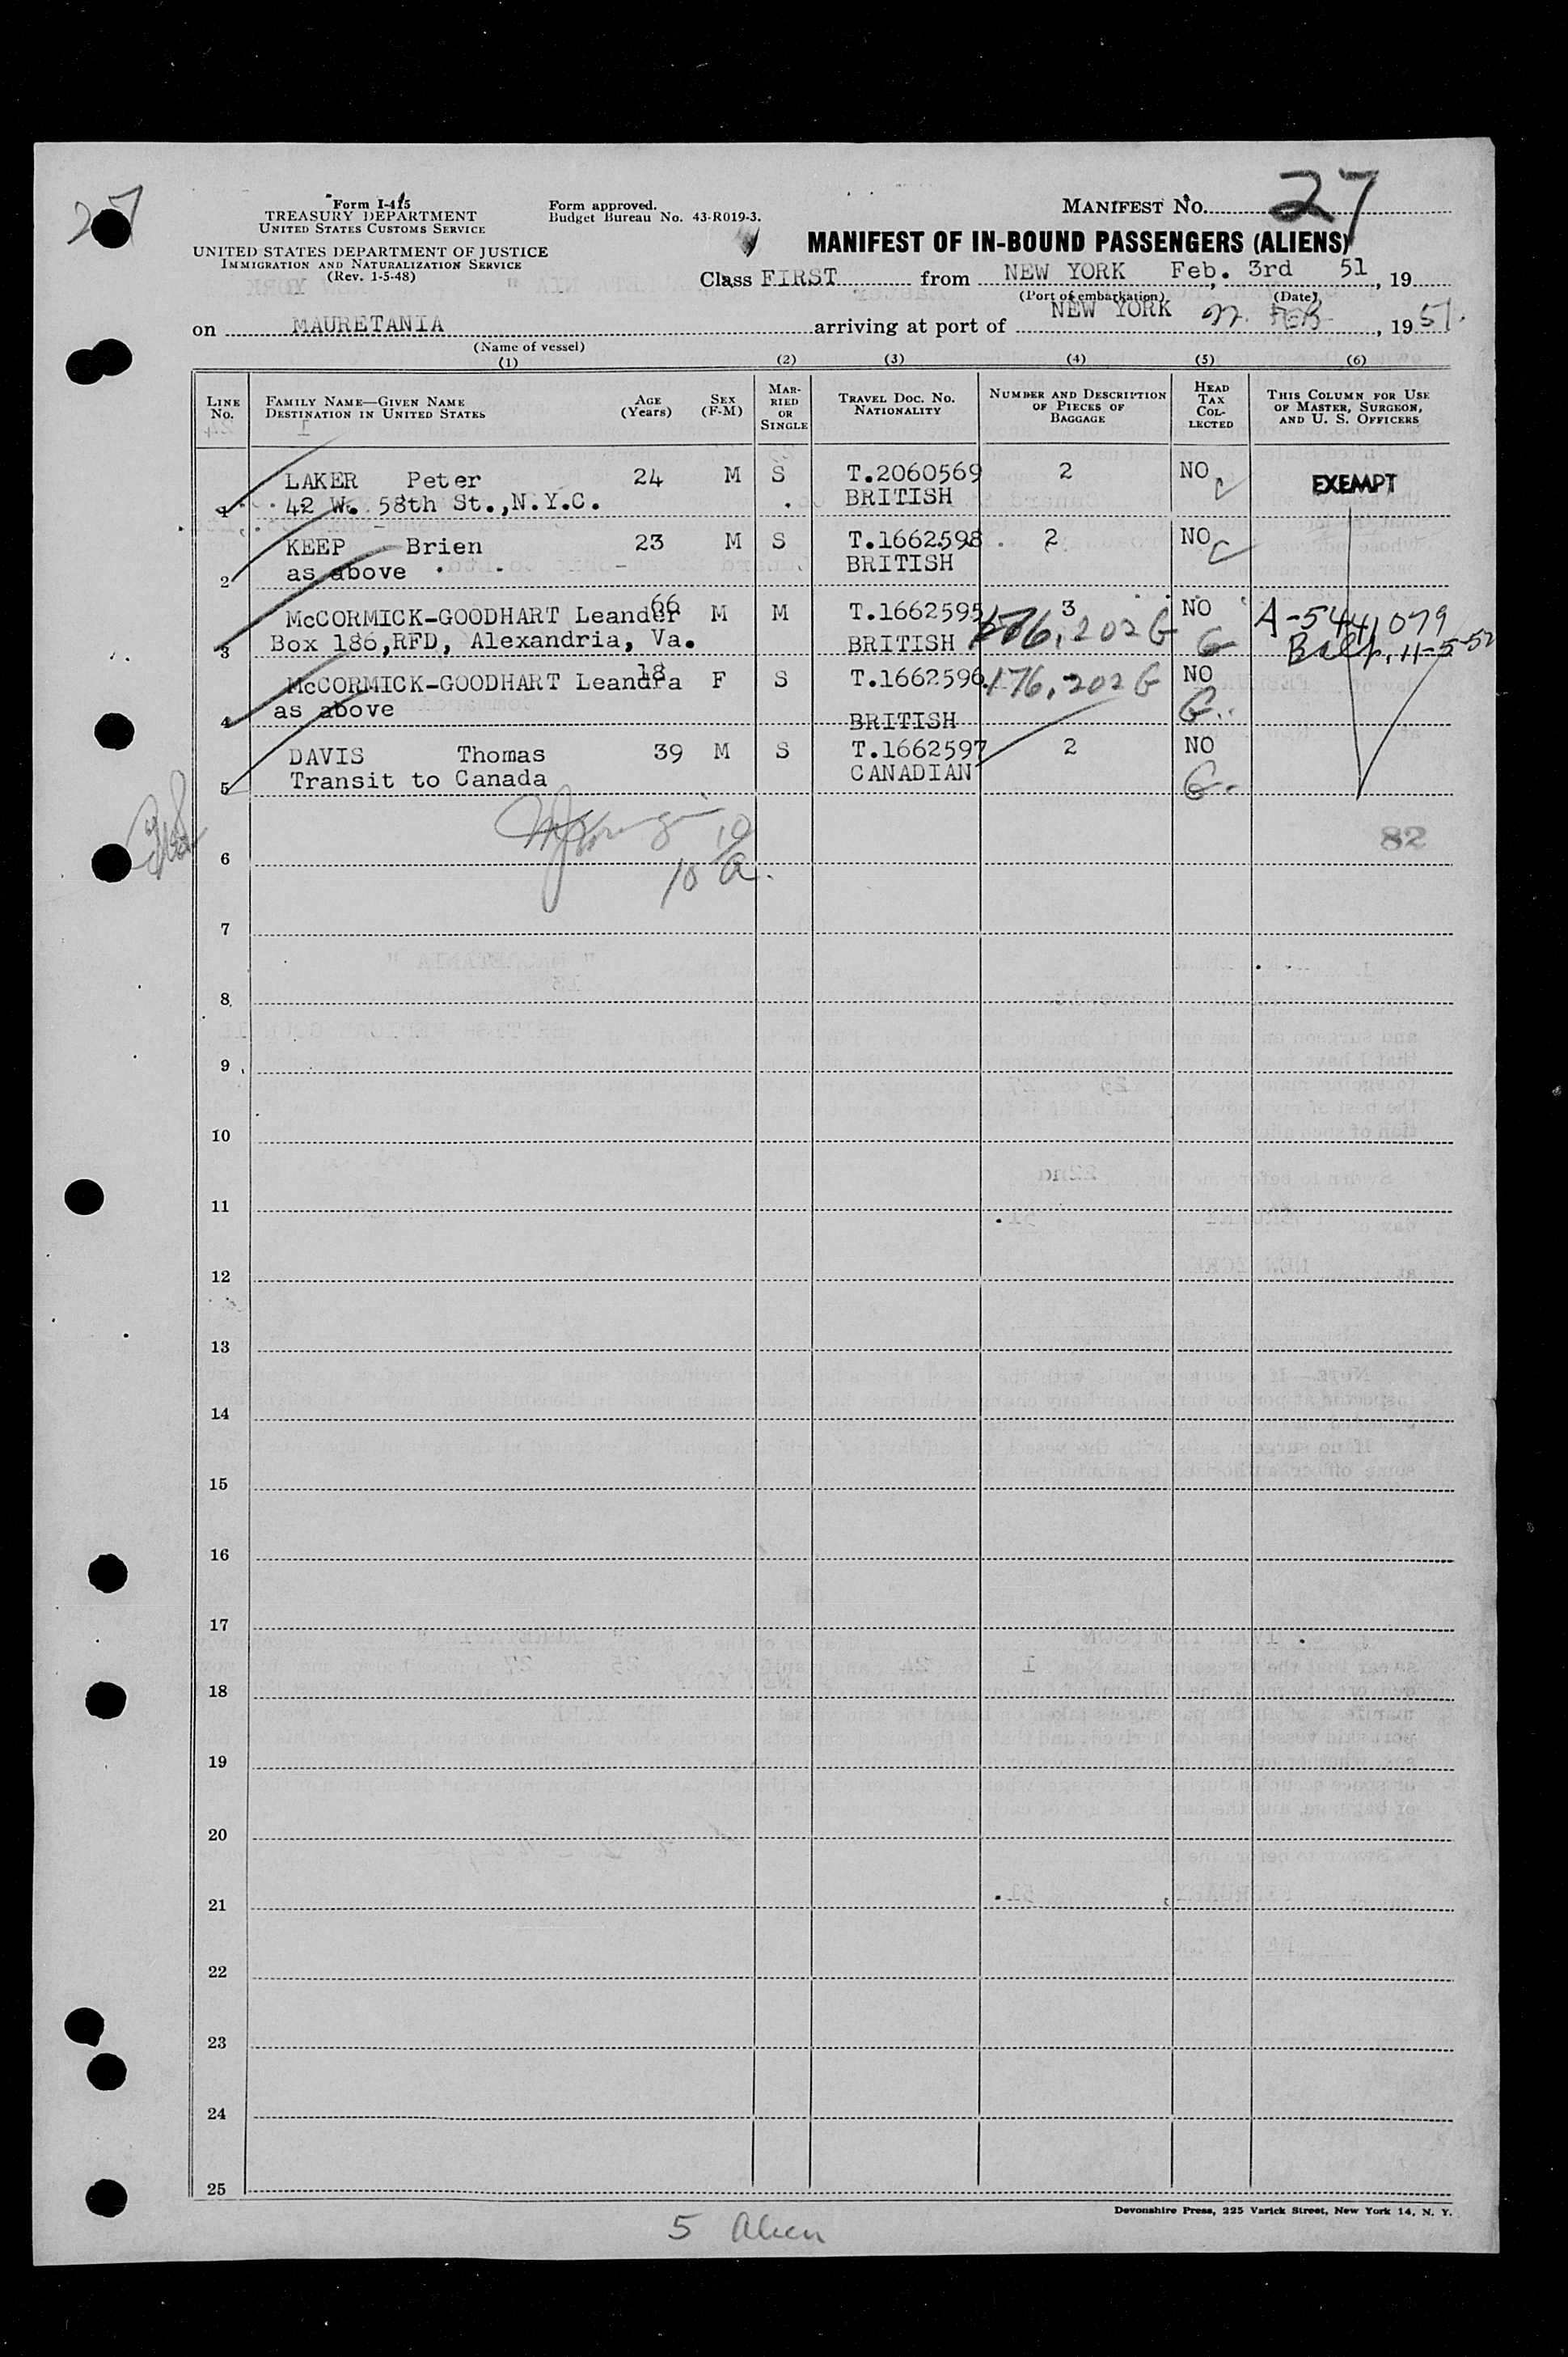 27
Form I-415
TREASURY DEPARTMENT
UNITED STATES CUSTOMS SERVICE
UNITED STATES DEPARTMENT OF JUSTICE
IMMIGRATION AND NATURALIZATION SERVICE
(Rev. 1-5-48)
Form approved.
Budget Bureau No. 43-R019-3.
MANIFEST NO. 27
MANIFEST OF IN-BOUND PASSENGERS (ALIENS)
Class FIRST from NEW YORK, Feb. 3rd 51, 19
(Port of embarkation) (Date)
on MAURETANIA arriving at port of NEW YORK 22 FEB, 1951.
(Name of vessel)
(1) (2) (3) (4) (5) (6)
LINE No. FAMILY NAME—GIVEN NAME DESTINATION IN UNITED STATES AGE (Years) SEX (F-M) MARRIED OR SINGLE TRAVEL DOC. NO. NATIONALITY NUMBER AND DESCRIPTION OF PIECES OF BAGGAGE HEAD TAX COLLECTED THIS COLUMN FOR USE OF MASTER, SURGEON, AND U. S. OFFICERS
LAKER Peter 24 M S T.2060569 2 NO EXEMPT
1 42 W. 58th St.,N.Y.C. BRITISH
KEEP Brien 23 M S T.1662598 2 NO
2 as above BRITISH
McCORMICK-GOODHART Leander 66 M M T.1662595 3 NO A-5441079
3 Box 186,RFD, Alexandria, Va. BRITISH 176,202 G G Balt. 11-5-52
McCORMICK-GOODHART Leandra 18 F S T.1662596 176,202 G NO
4 as above BRITISH G
DAVIS Thomas 39 M S T.1662597 2 NO
5 Transit to Canada CANADIAN G
82
6
10
10 a.
7
8
9
10
11
12
13
14
15
16
17
18
19
20
21
22
23
24
25
Devonshire Press, 225 Varick Street, New York 14, N. Y.
5 Alien